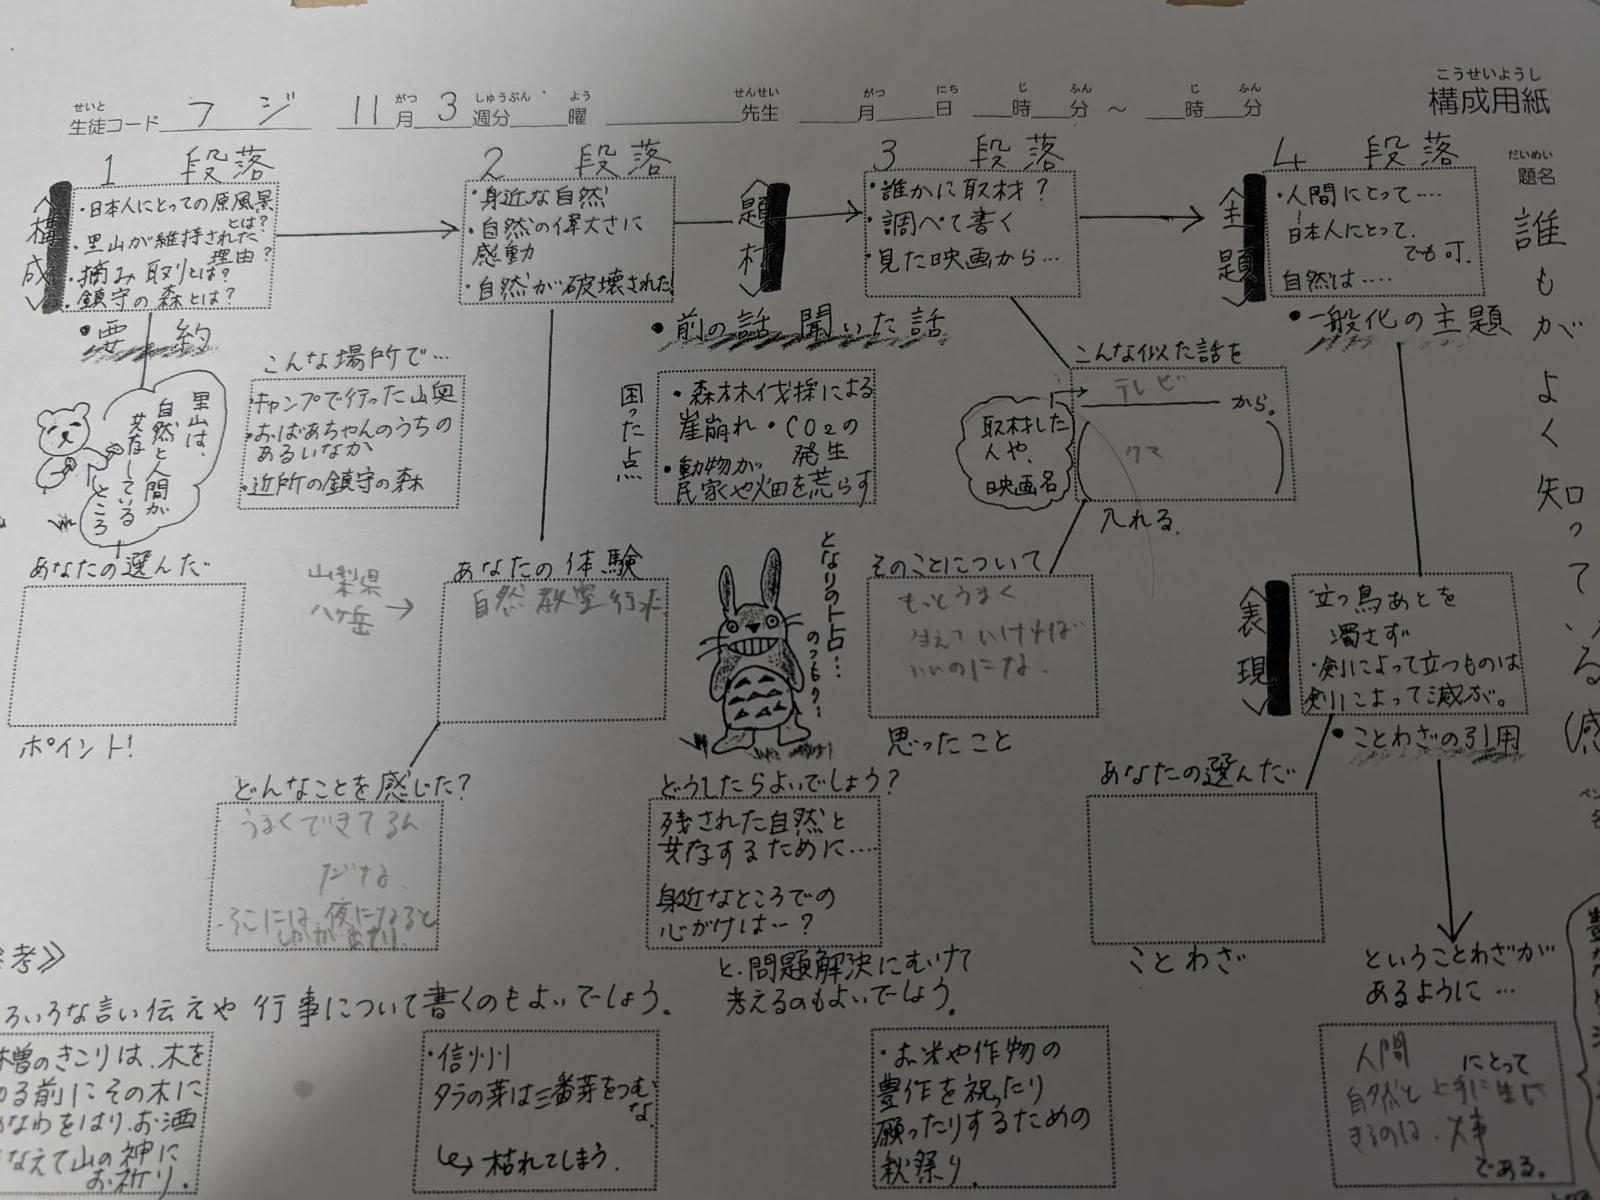 こうせいようし
構成用紙
せいと がつ しゅうぶん よう せんせい がつ にち じ ふん じ ふん
生徒コード フジ 11月3週分 曜 先生 月 日 時 分 ～ 時 分
だいめい
題名
誰もがよく知っている
1 段落
〈構成〉
・日本人にとっての原風景
とは？
・里山が維持された
理由？
・摘み取りとは？
・鎮守の森とは？
・要約
里山は、
自然と人間が
共存している
ところ
あなたの選んだ
ポイント!
2 段落
・身近な自然
・自然の偉大さに
感動
・自然が破壊された!
こんな場所で…
・キャンプで行った山奥
・おばあちゃんのうちの
あるいなか
・近所の鎮守の森
山梨県
八ヶ岳
→
あなたの体験
自然教室行った
どんなことを感じた？
うまくできてるん
だな
そこには、夜になると
しかが出たり
〈題材〉
・前の話 聞いた話
困った点
・森林伐採による
崖崩れ・CO2の
発生
・動物が
民家や畑を荒らす
となりのトトロ…
3 段落
・誰かに取材？
・調べて書く
・見た映画から…
こんな似た話を
テレビ から。
クマ
取材した
人や、
映画名
に
入れる.
そのことについて
もっとうまく
生えていければ
いいのにな.
思ったこと
どうしたらよいでしょう？
残された自然と
共存するために….
身近なところでの
心がけは…？
と.問題解決にむけて
考えるのもよいでしょう。
〈主題〉
4 段落
・人間にとって….
日本人にとって.
でも可.
自然は….
・一般化の主題
〈表現〉
立つ鳥あとを
濁さず
・剣によって立つものは
剣によって滅が。
・ことわざの引用
あなたの選んだ
ことわざ
ということわざが
あるように…
人間 にとって
自然と上手に生
きるのは、大事
である。
考》
ろいろな言い伝えや行事について書くのもよいでしょう。
曽のきこりは、木を
る前にその木に
なわをはり、お酒
なえて山の神に
お祈り.
・信州
タラの芽は三番芽をつむ
な
↳ 枯れてしまう.
・お米や作物の
豊作を祝ったり
願ったりするための
秋祭り.